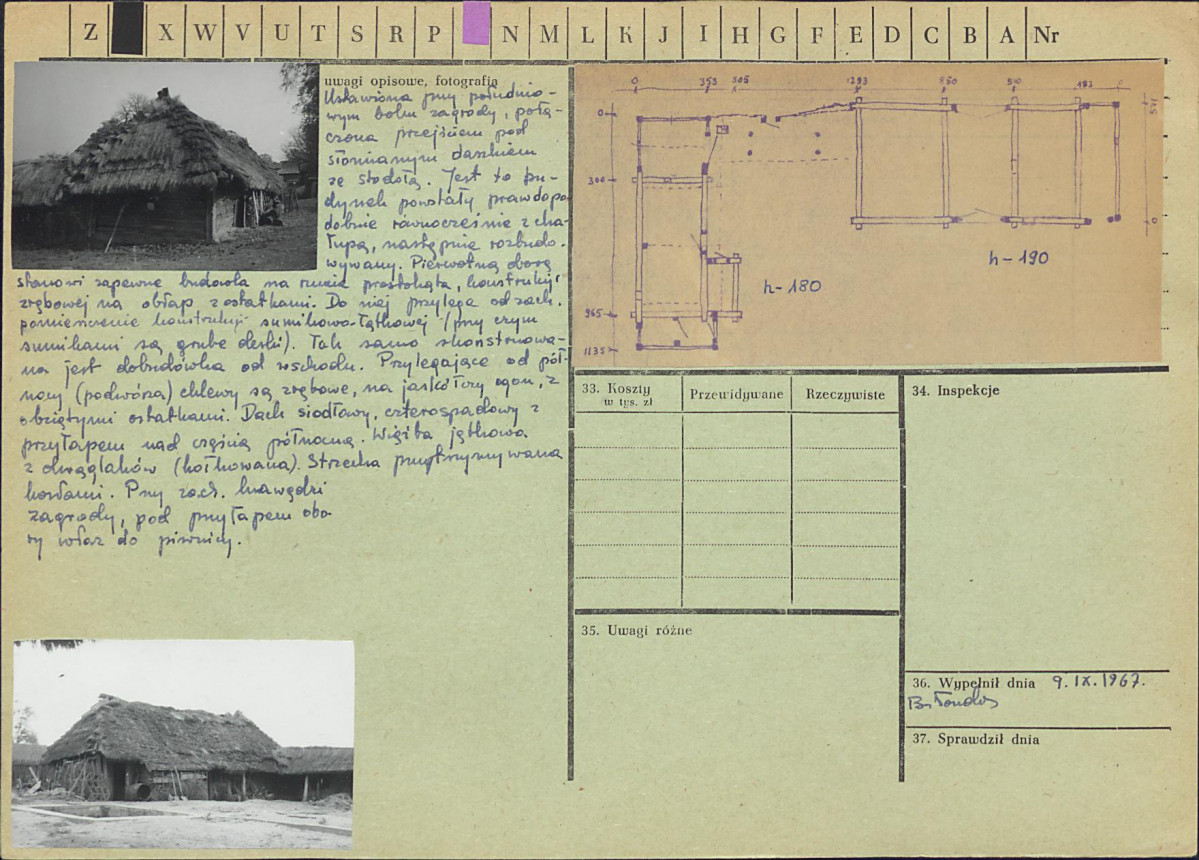 Z X W V U T S R P N M L K J I H G F E D C B A Nr
uwagi opisowe, fotografia
Ustawiona przy południo-
wym boku zagrody, połą-
czona przejściem pod
słomianym daszkiem
ze stodołą. Jest to bu-
dynek powstały prawdopo
dobnie równocześnie z cha-
łupą, następnie rozbudo-
wywany. Pierwotną oborę
stanowi zapewne budowla na rzucie prostokąta, konstrukcji
zrębowej na obłap z ostatkami. Do niej przylega od zach.
pomieszczenie konstrukcji sumikowo-łątkowej (przy czym
sumikami są grube deski). Tak samo skonstruowa-
na jest dobudówka od wschodu. Przylegające od pół-
nocy (podwórza) chlewy są zrębowe, na jaskółczy ogon, z
obciętymi ostatkami. Dach siodłowy, czterospadowy z
przyłapem nad częścią północną. Więźba jętkowa
z okrąglaków (kołkowana). Strzecha przytrzymywana
kozłami. Przy zach. krawędzi
zagrody, pod przyłapem obo-
ry właz do piwnicy.
0 353 505 1293 850 510 183 0
0
300
965
1135
0
h-180
h-190
33. Koszty
w tys. zł
Przewidywane
Rzeczywiste
34. Inspekcje
35. Uwagi różne
36. Wypełnił dnia 9.IX.1967.
37. Sprawdził dnia